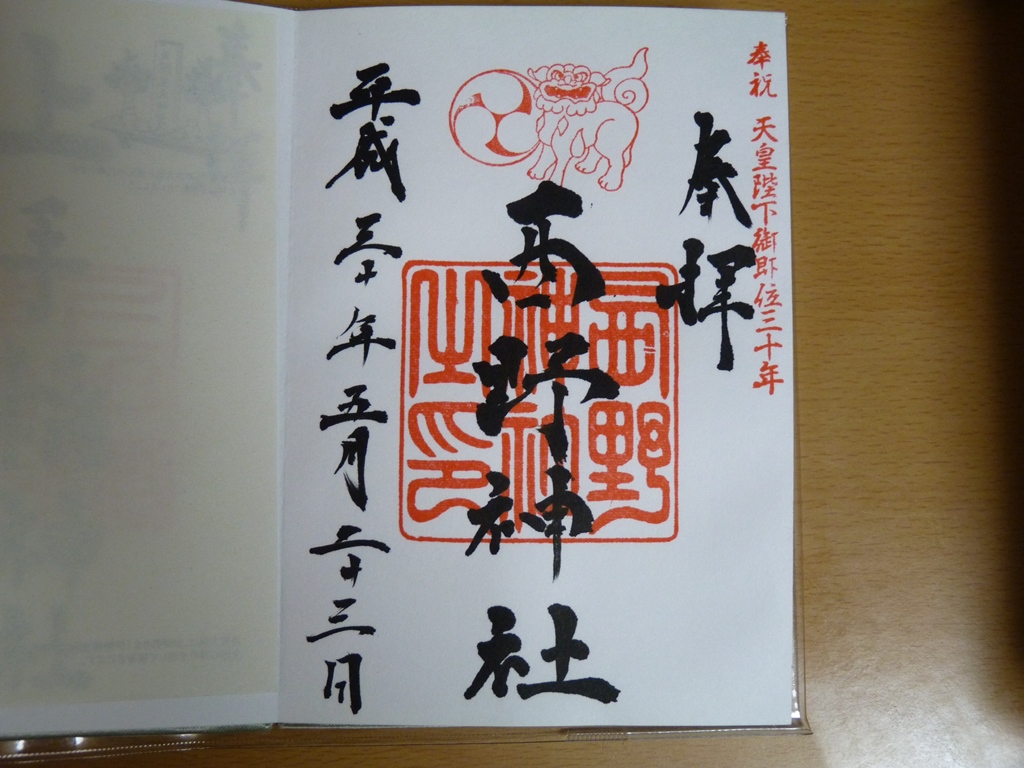 奉祝 天皇陛下御即位三十年
奉拝
西野神社
西野神社之印
平成三十年五月二十三日